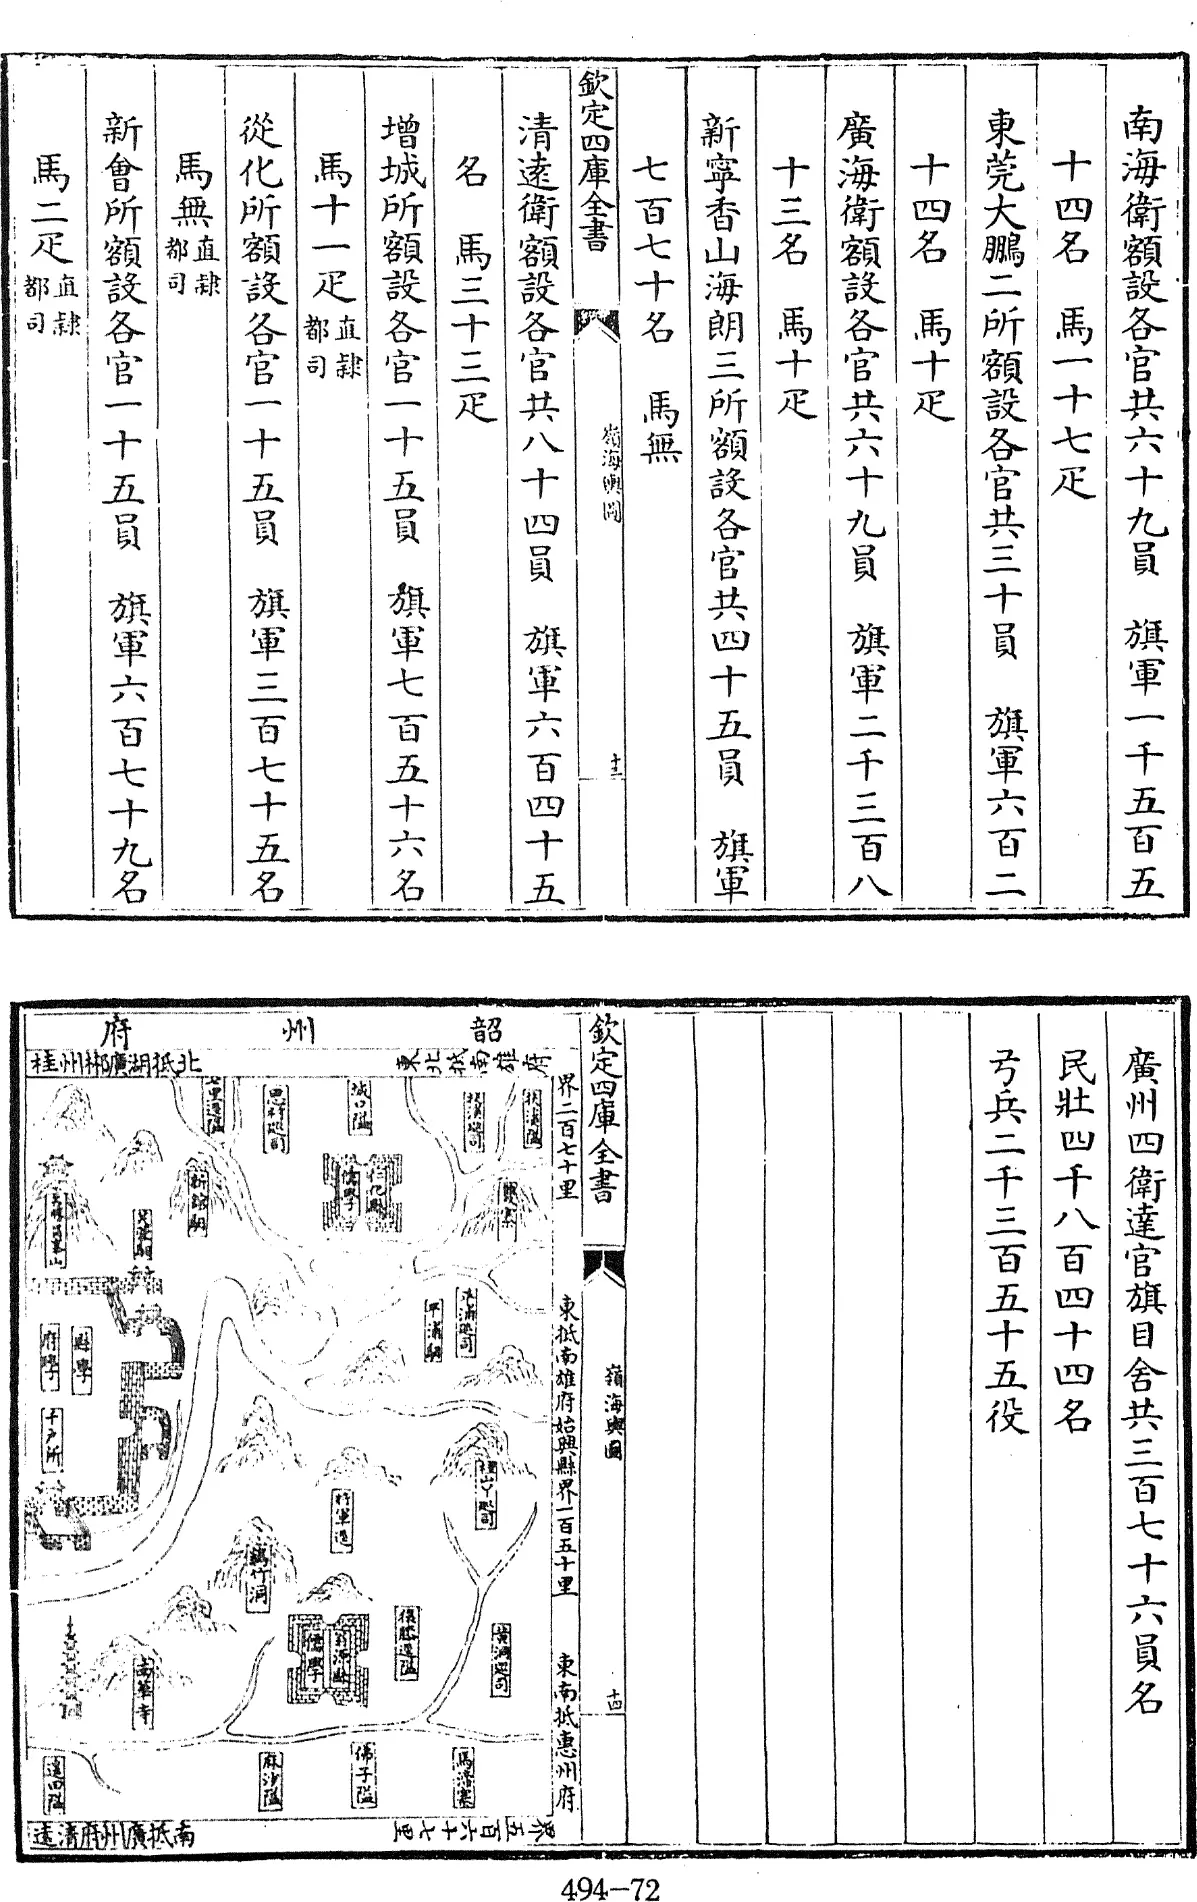 南海衛額設各官共六十九員　旗軍一千五百五
十四名　馬一十七疋
東莞大鵬二所額設各官共三十員　旗軍六百二
十四名　馬十疋
廣海衛額設各官共六十九員　旗軍二千三百八
十三名　馬十疋
新寧香山海朗三所額設各官共四十五員　旗軍
七百七十名　馬無
欽定四庫全書
嶺海輿圖
十三
清遠衛額設各官共八十四員　旗軍六百四十五
名　馬三十三疋
增城所額設各官一十五員　旗軍七百五十六名
馬十一疋直隸都司
從化所額設各官一十五員　旗軍三百七十五名
馬無直隸都司
新會所額設各官一十五員　旗軍六百七十九名
馬二疋直隸都司
廣州四衛達官旗目舍共三百七十六員名
民壯四千八百四十四名
弓兵二千三百五十五役
欽定四庫全書
嶺海輿圖
十四
韶州府
東北抵南雄府
界二百七十里
東抵南雄府始興縣界一百五十里
東南抵惠州府
界五百六十七里
北抵湖廣郴州桂
南抵廣州府清遠
城口隘
仁化縣
儒學
平浦驛
縣學
府學
千戶所
翁源縣
儒學
南華寺
麻沙隘
佛子隘
494-72